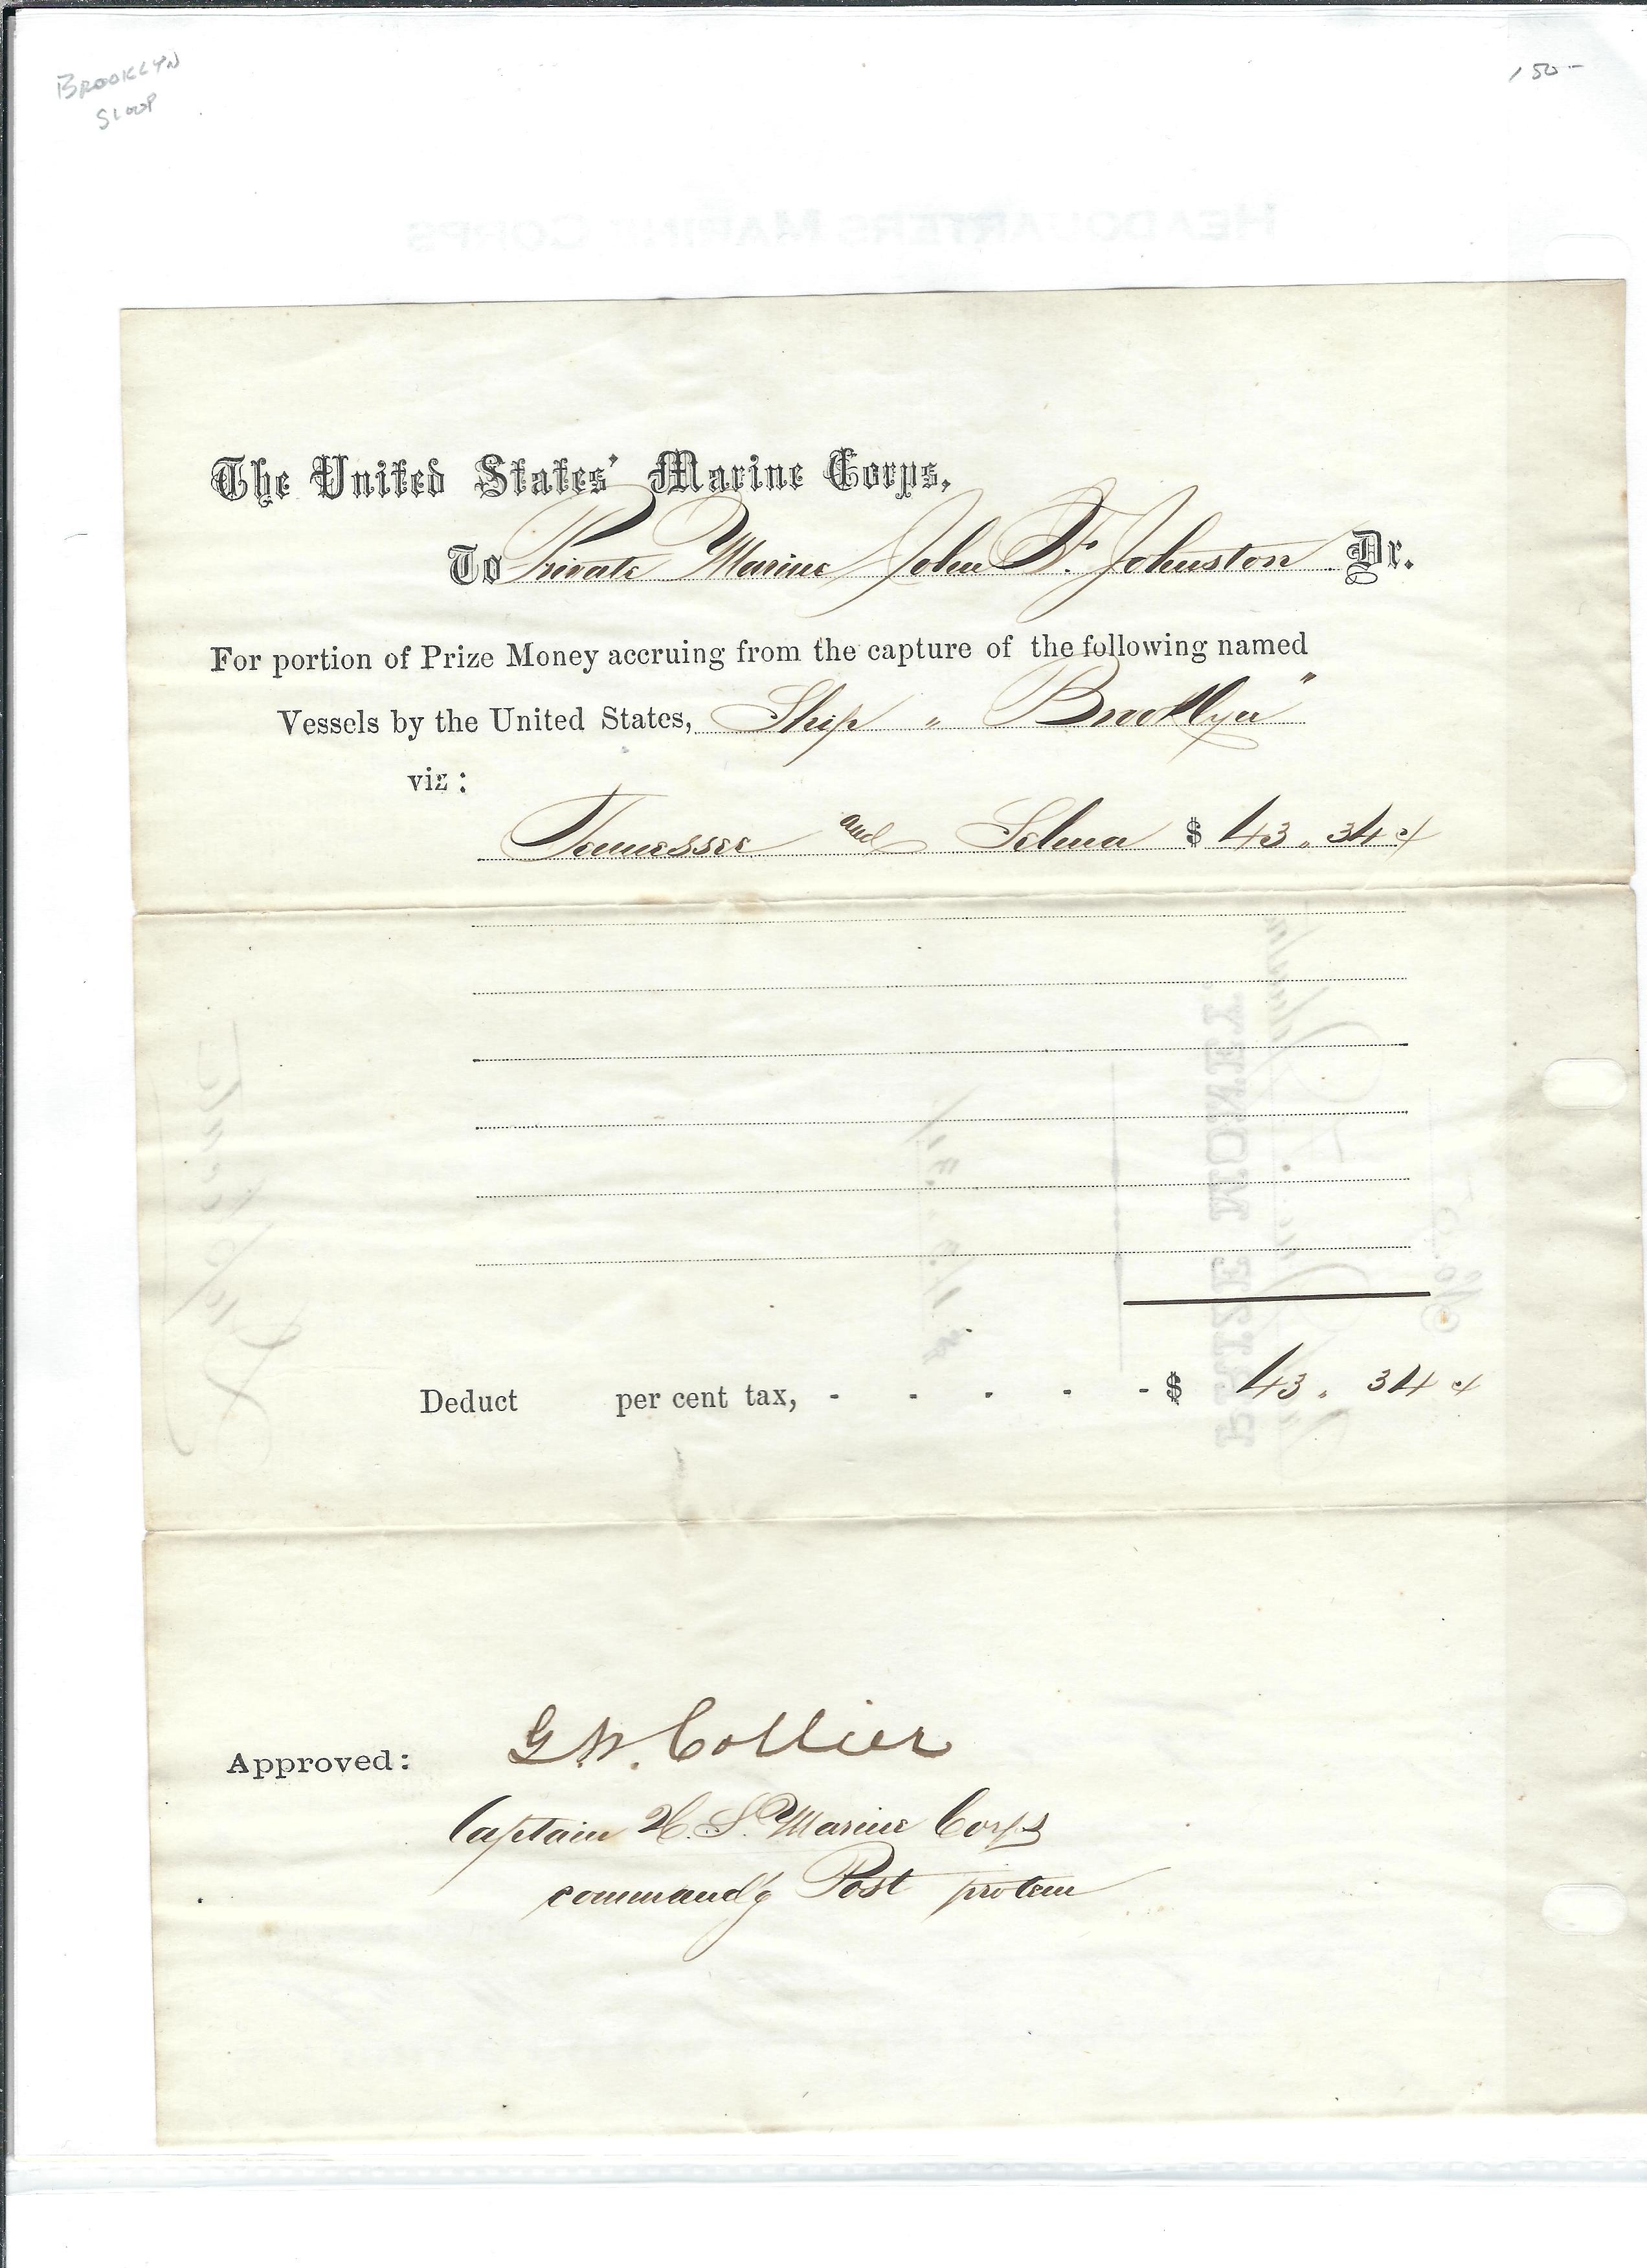 BROOKLYN
SLOOP
150-
HEADQUARTERS MARINE CORPS
The United States' Marine Corps,
To Private Marine John F. Johnston Dr.
For portion of Prize Money accruing from the capture of the following named
Vessels by the United States, Ship " Brooklyn"
viz:
Tennessee and Selma $ 43. 34 cts
PRIZE MONEY
Deduct per cent tax, - - - - - $ 43. 34 cts
Approved: G W. Collier
Captain U. S. Marine Corps
command'g Post protem